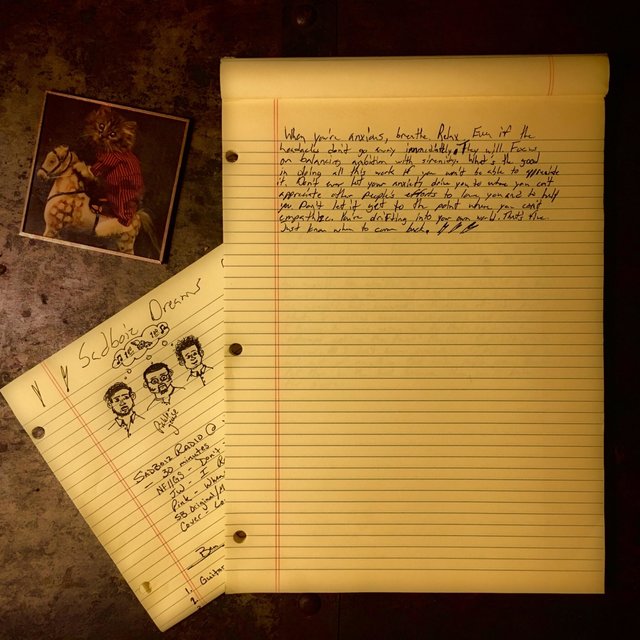 When you're anxious, breathe. Relax. Even if the
headaches don't go away immediately, they will. Focus
on balancing ambition with serenity. What's the good
in doing all this work if you won't be able to appreciate
it. Don't ever let your anxiety drive you to where you can't
appreciate other people's efforts to love you and to help
you. Don't let it get to the point where you can't
empathize. You're drifting into your own world. That's fine.
Just know when to come back.
Sadboiz Dreams
Public
Sadboiz Radio @
- 30 minutes
- Don't
JW - I
Pink - When
SB Original/M
Cover - Lo
1. Guitar
2